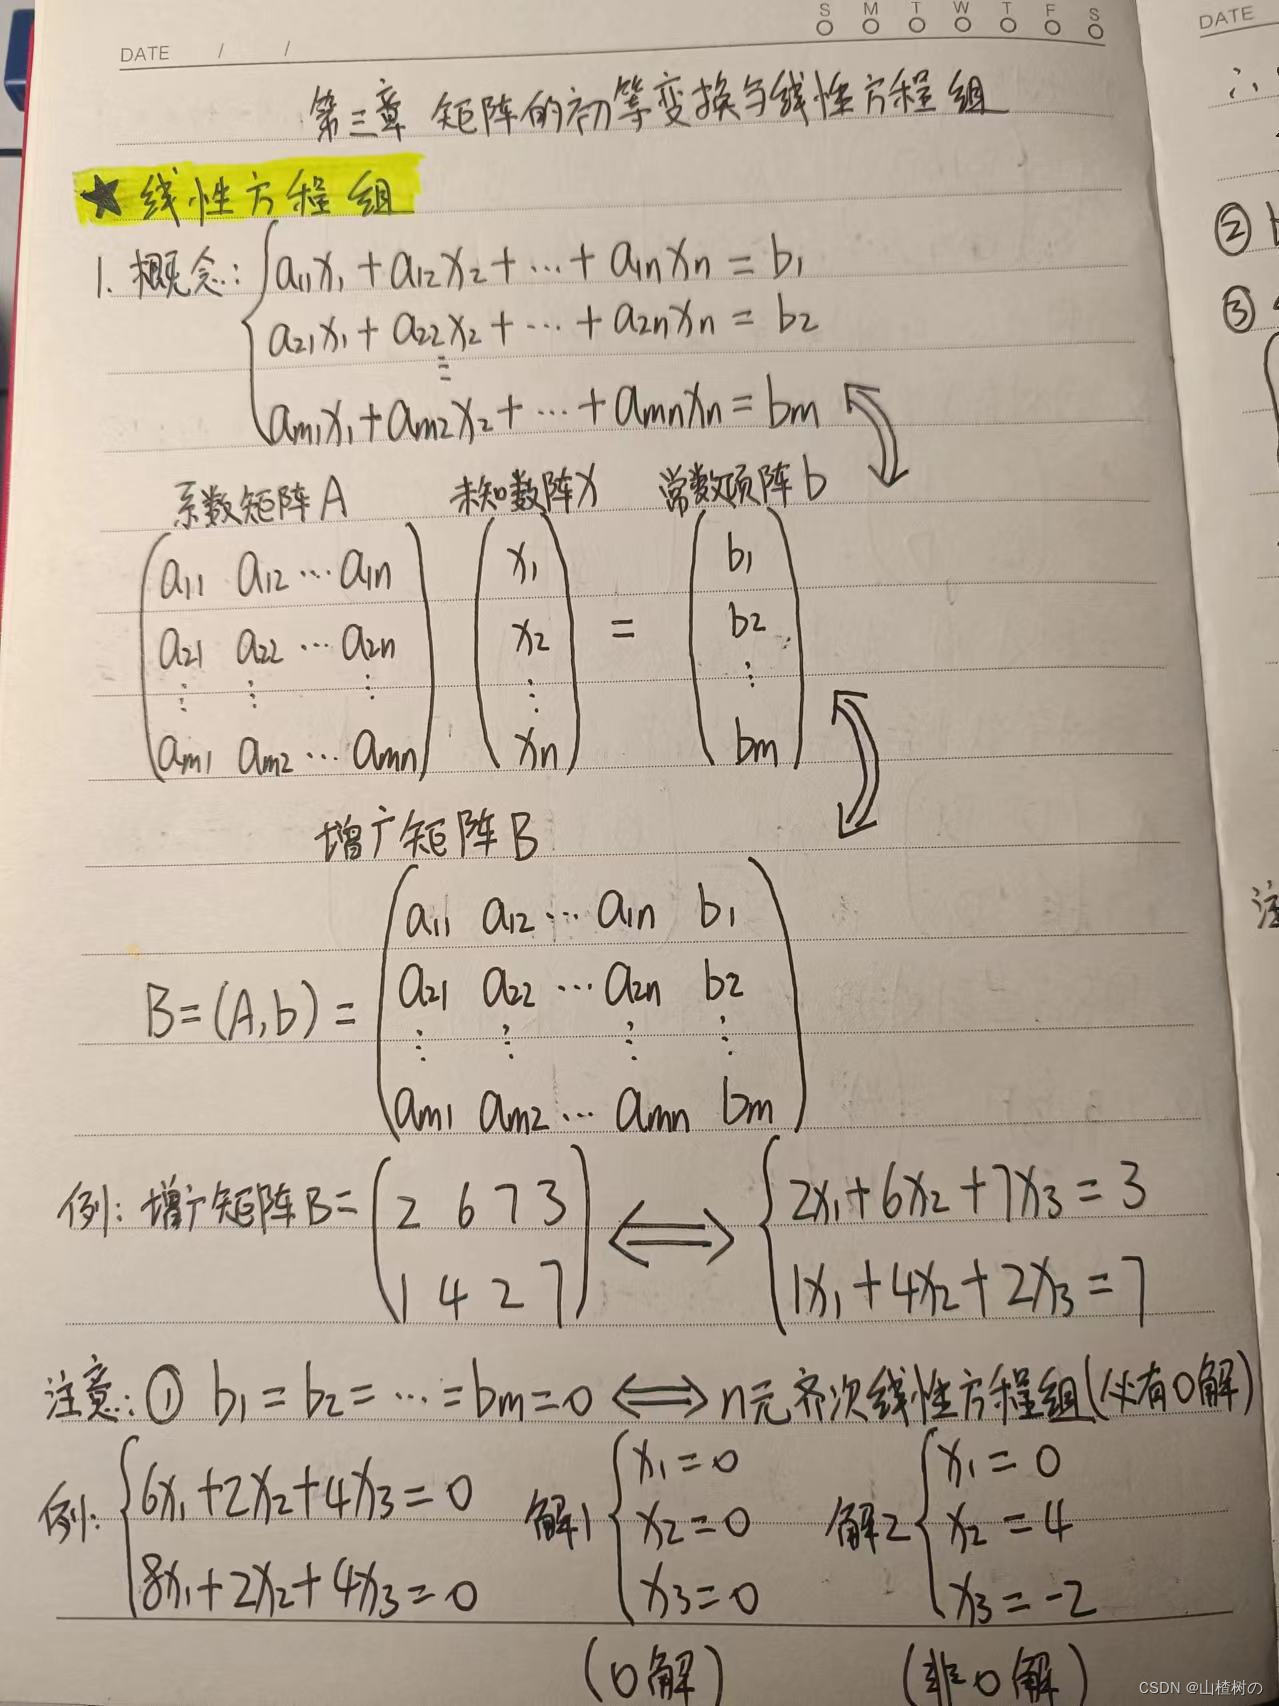 S M T W T F S
DATE / /
第三章 矩阵的初等变换与线性方程组
★ 线性方程组
1. 概念: { a11x1 + a12x2 + ⋯ + a1nxn = b1
a21x1 + a22x2 + ⋯ + a2nxn = b2
⋮
am1x1 + am2x2 + ⋯ + amnxn = bm
系数矩阵A 未知数阵X 常数项阵b
a11 a12 ⋯ a1n x1 b1
a21 a22 ⋯ a2n x2 = b2
⋮ ⋮ ⋮ ⋮ ⋮
am1 am2 ⋯ amn xn bm
增广矩阵B
a11 a12 ⋯ a1n b1
a21 a22 ⋯ a2n b2
B=(A,b) =
⋮ ⋮ ⋮ ⋮
am1 am2 ⋯ amn bm
例: 增广矩阵B = ( 2 6 7 3 ⟺ { 2x1+6x2+7x3=3
1 4 2 7 ) 1x1+4x2+2x3=7
注意: ① b1=b2=⋯=bm=0 ⟺ n元齐次线性方程组(必有0解)
例: { 6x1+2x2+4x3=0 解1 { x1=0 解2 { x1=0
x2=0 x2=4
8x1+2x2+4x3=0 x3=0 x3=-2
(0解) (非0解)
DATE
∴
②
③
注
CSDN @山楂树の